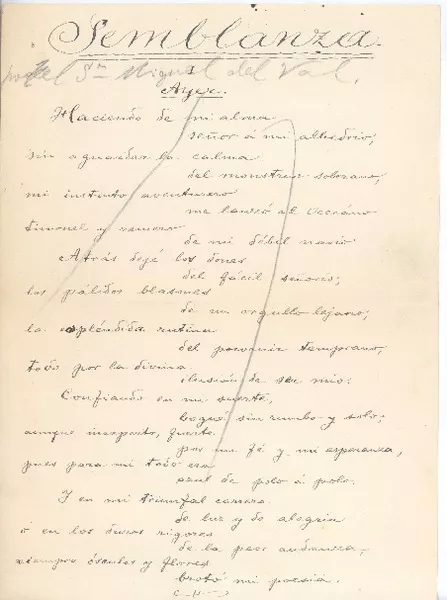 Semblanza.
por el Sr. Miguel del Val.
Ayer.
Haciendo de mi alma
señor á mi albedrío,
sin aguardar la calma
del monstruo soberano,
mi instinto aventurero
me lanzó al Occeáno
timonel y remero
de mi débil navío
Atrás dejé los dones
del fácil señorío;
los pálidos blasones
de un orgullo lejano;
la espléndida rutina
del porvenir temprano,
todo por la divina
ilusión de ser mío.
Confiando en mi suerte,
bogué sin rumbo y solo;
aunque inexperto, fuerte
por mi fé y mi esperanza,
pues para mí todo era
azul de polo á polo.
Y en mi triunfal carrera
de luz y de alegría
ó en los duros rigores
de la peor andanza,
siempre ósculos y flores
brotó mi poesía.